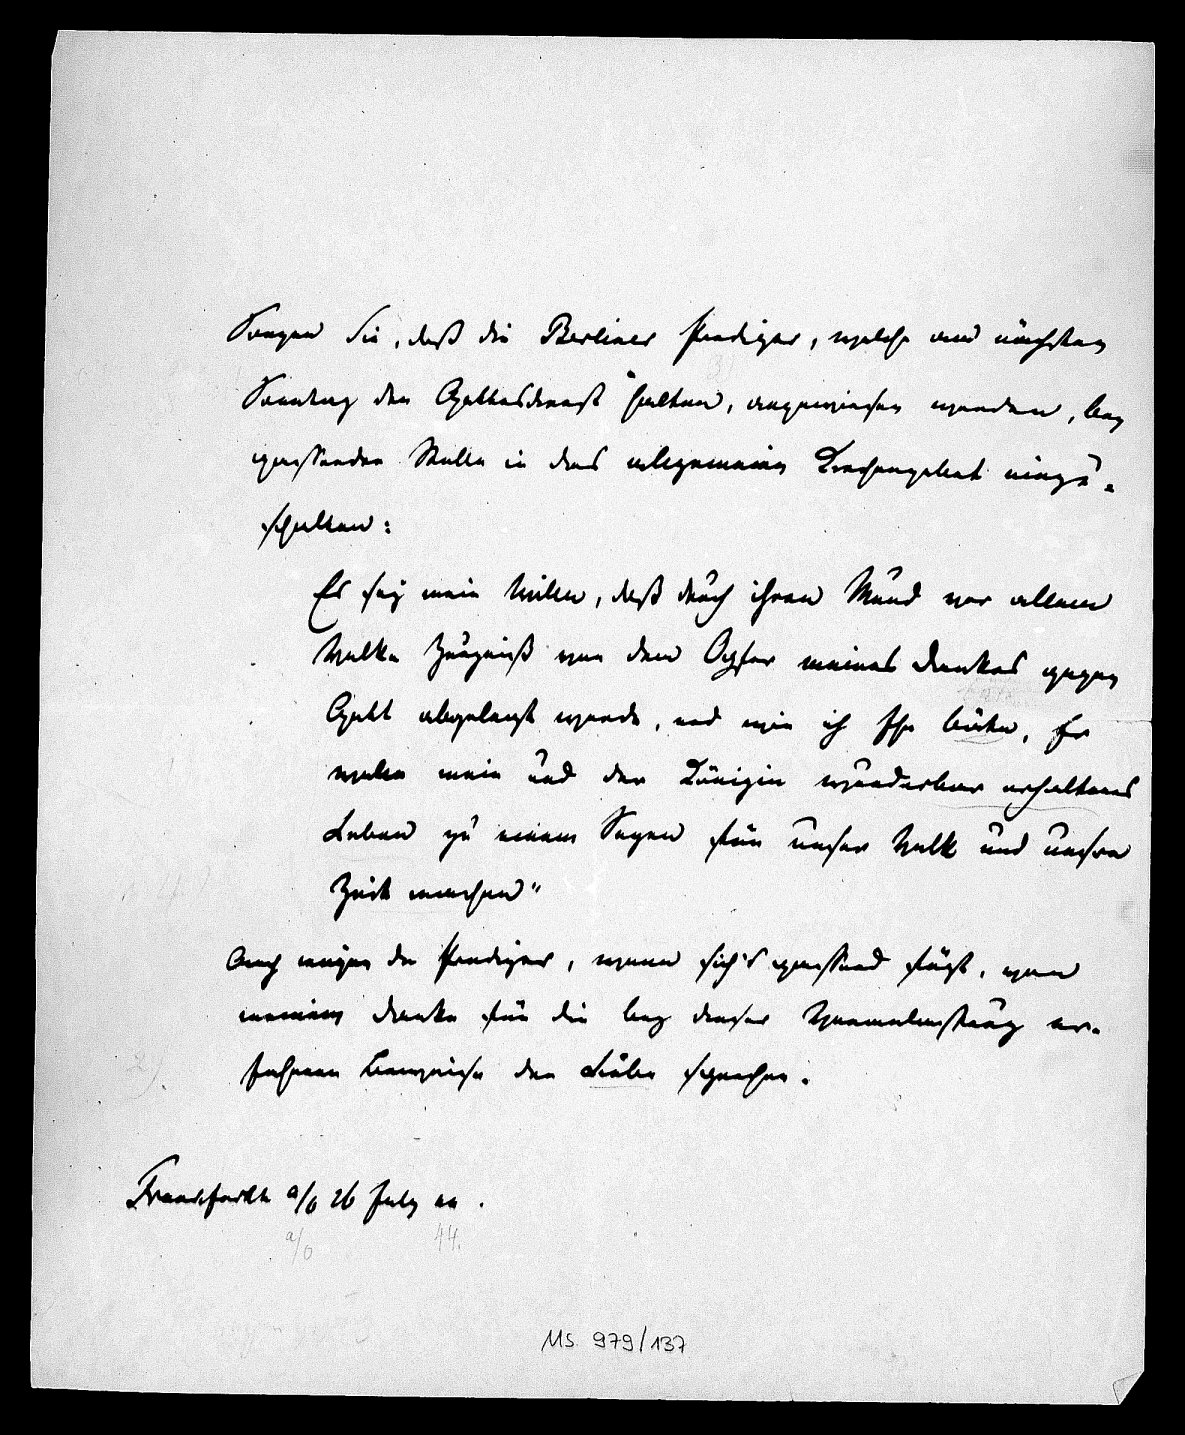 Sorgen Sie, daß die Berliner Prediger, welche am nächsten
Sonntag den Gottesdienst halten, angewiesen werden, bey
passender Stelle in das allgemeine Kirchengebet einzu-
schalten:
Es sey mein Wille, daß durch ihren Mund vor allem
Volke Zeugniß von dem Opfer meines Dankes gegen
Gott abgelegt werde, und wie ich Ihn bäte, Er
wolle mein und der Königin wunderbar erhaltenes
Leben zu einem Segen für unser Volk und unsre
Zeit machen"
Auch mögen die Prediger, wenn sich's passend fügt, von
meinem Danke für die bey dieser Veranlassung er-
fahrenen Beweise der Liebe sprechen.
Franckfurth a/O 26 July 44.
a/O 44.
Ms. 979/137